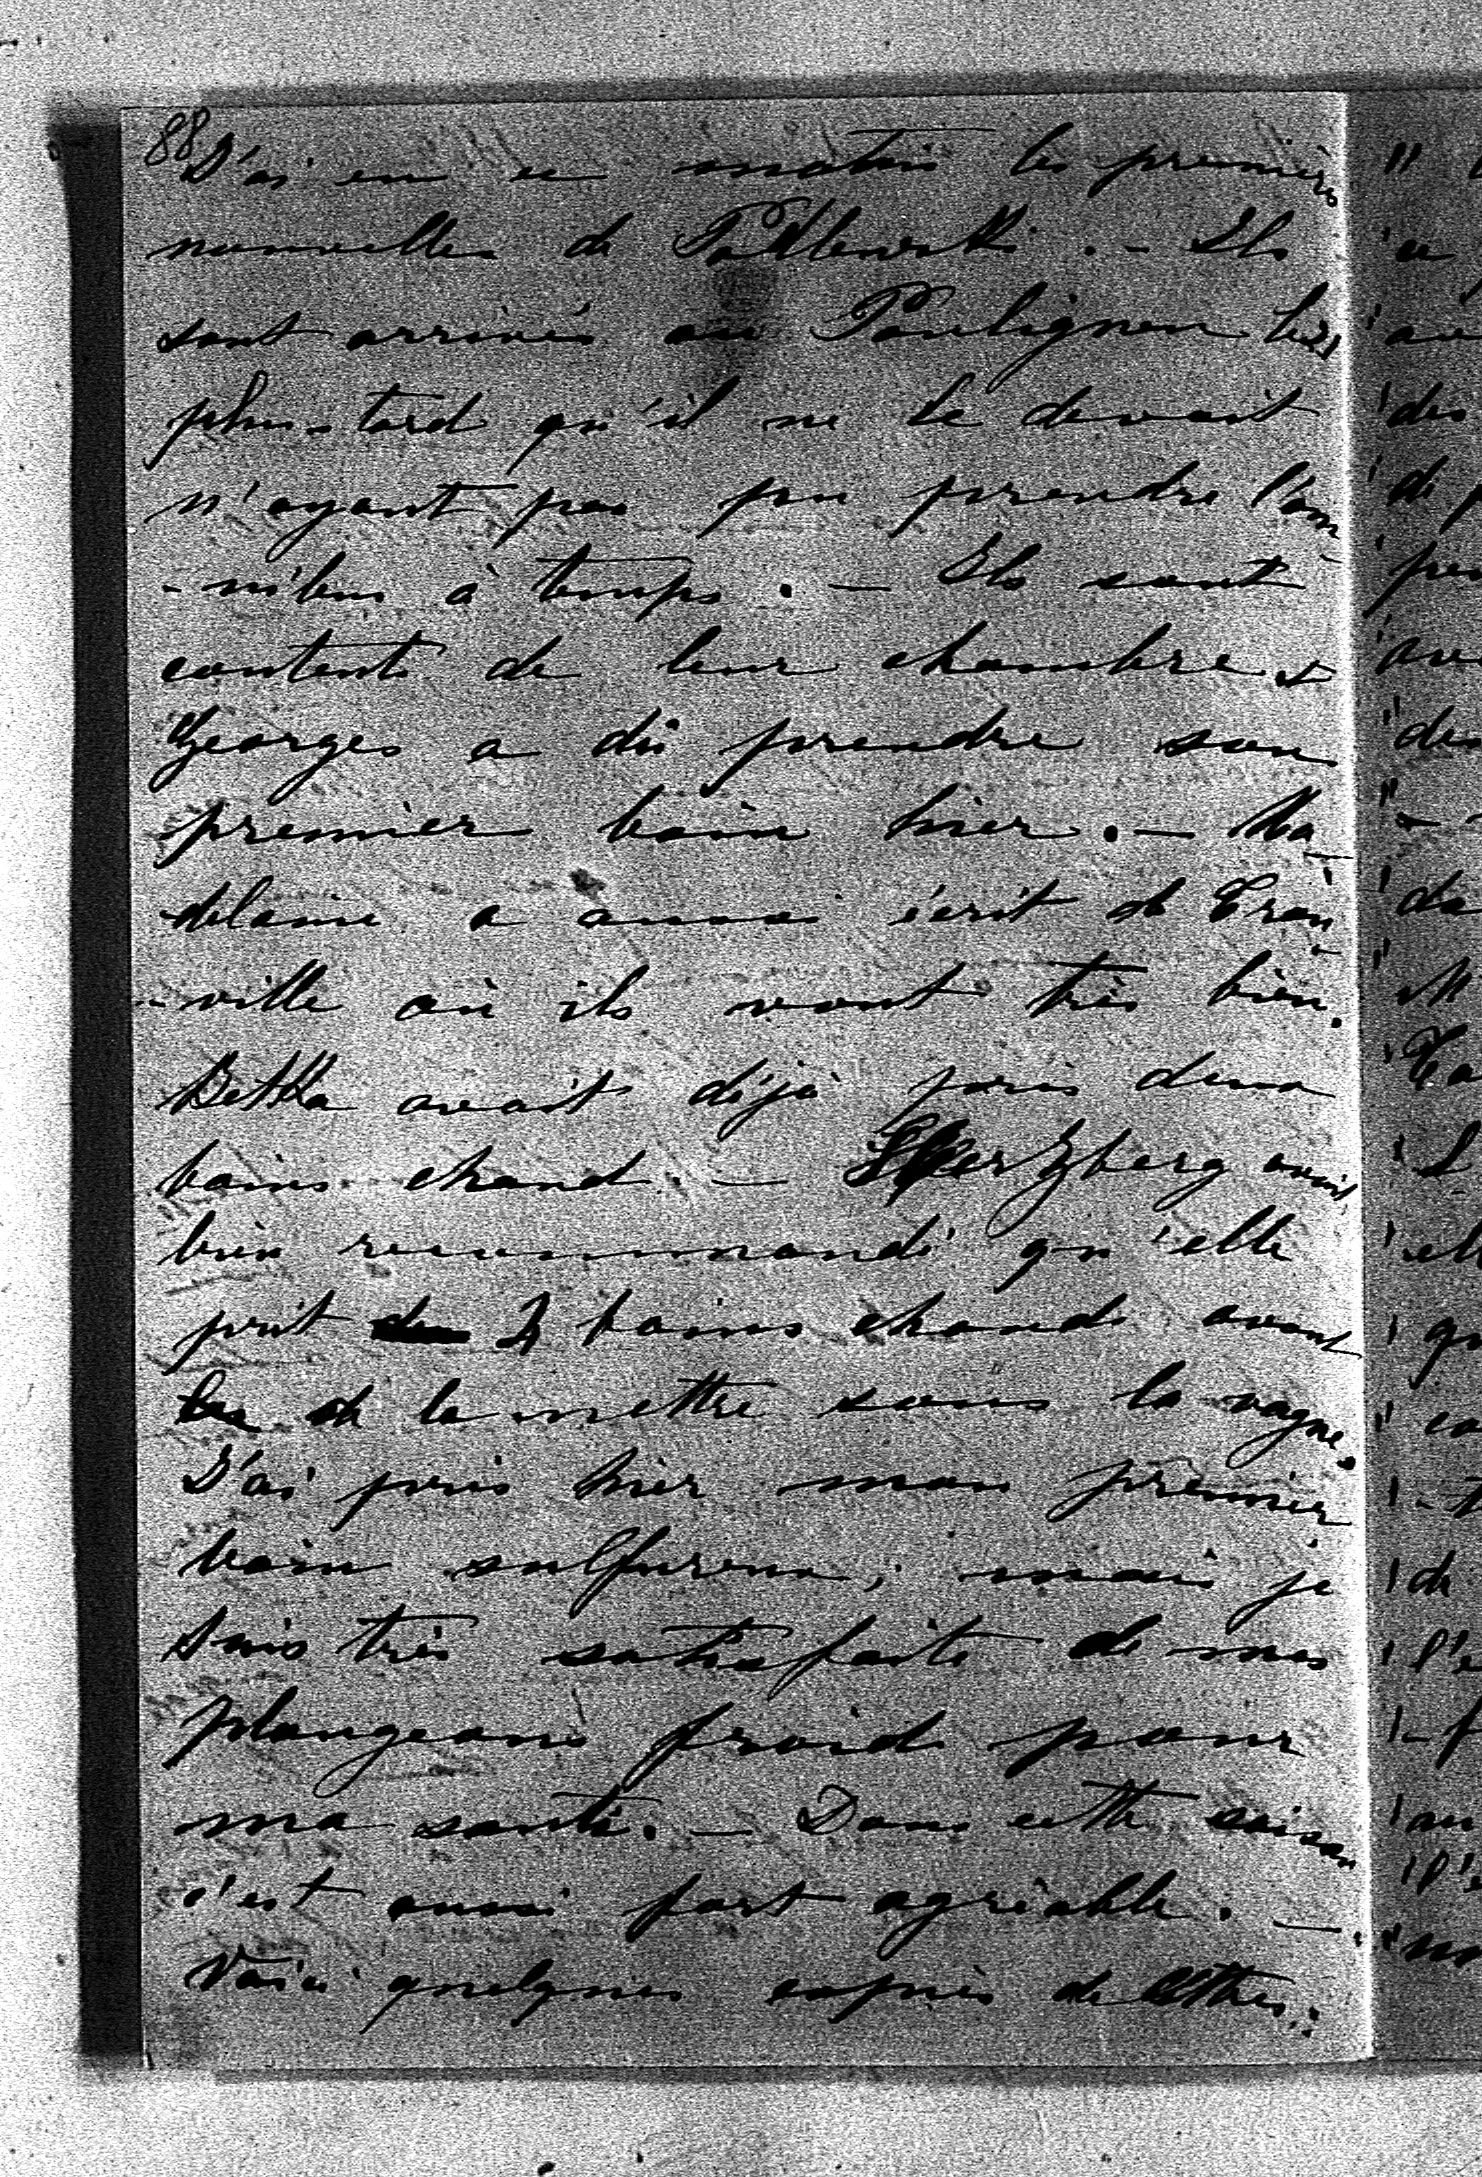 88
J'ai eu ce matin les premières
nouvelles de Padlewski. – Ils
sont arrivés au Pouliguen bien
plus tard qu'il ne le devait
n'ayant pas pu prendre l'om
-nibus à temps. – Ils sont
contents de leur chambre &
Georges a dû prendre son
premier bain hier. – Ma
delaine a aussi écrit de Trou
-ville où ils vont très bien.
Betka avait déjà pris deux
bains chaud. – Hertzberg avait
bien recommandé qu'elle
prit 4 bains chauds avant
de la mettre sous la vague.
J'ai pris hier mon premier
bain sulfureux; mais je
suis très satisfaite de mes
plongeons froids pour
ma santé. – Dans cette saison
c'est aussi fort agréable. –
Voici quelques copies de lettres: